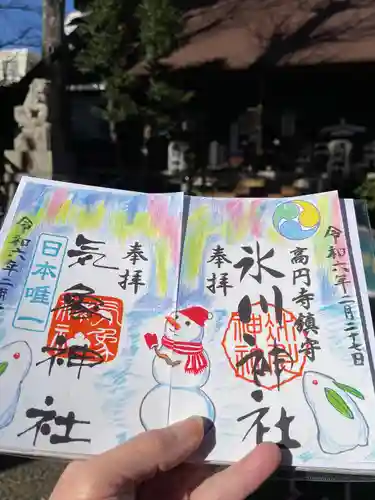 令和六年二月二十七日
高円寺鎮守
氷川神社
奉拝
奉拝
気象神社
日本唯一
令和六年二月